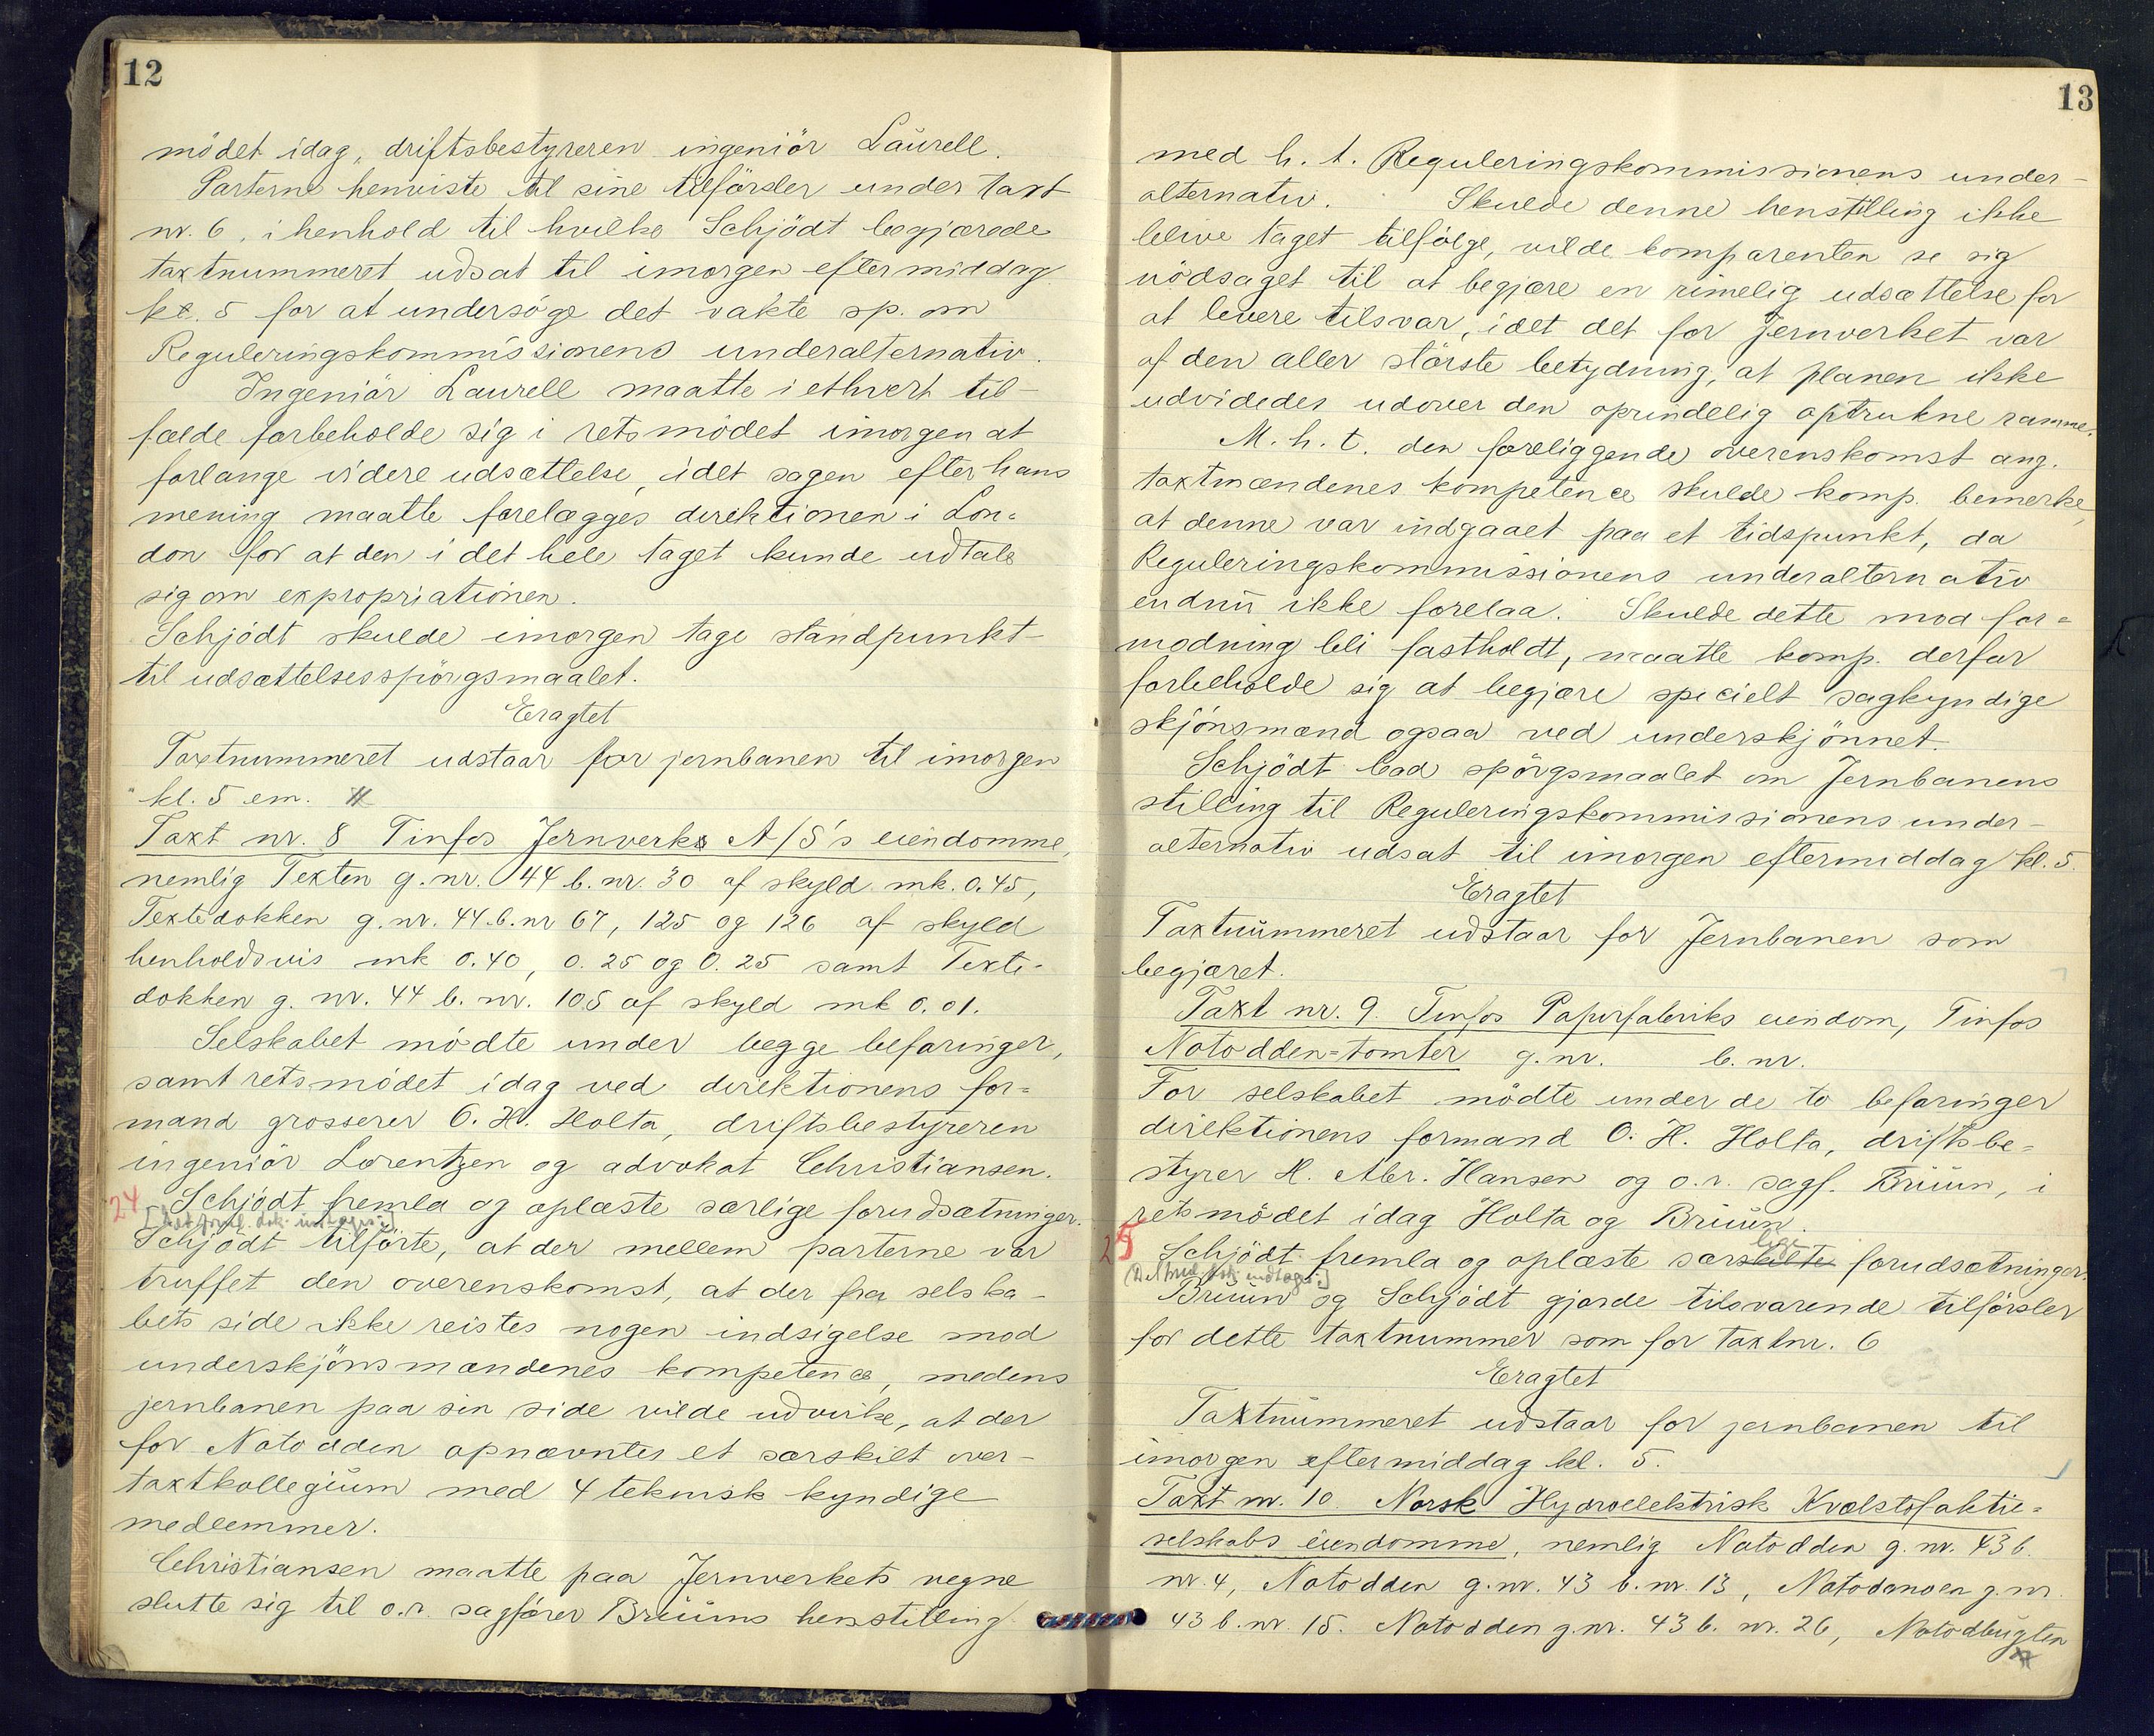 12
mödet idag, driftsbestyreren ingeniör Laurell.
Parterne henviste til sine tilförsler under taxt
nr. 6, i henhold til hvilke Schjödt begjærede
taxtnummeret udsat til imorgen eftermiddag
kl. 5 for at undersöge det vakte sp. om
Reguleringskommissionens underalternativ.
Ingeniör Laurell maatte i ethvert til-
fælde forbeholde sig i retsmödet imorgen at
forlange videre udsættelse, idet sagen efter hans
mening maatte forelægges direktionen i Lon=
don for at den i det hele taget kunde udtale
sig om expropriationen.
Schjödt skulde imorgen tage standpunkt
til udsættelsesspörgsmaalet.
Eragtet
Taxtnummeret udstaar for jernbanen til imorgen
kl. 5 em.
Taxt nr. 8 Tinfos Jernverks A/S's eiendomme,
nemlig Texten g.nr. 44 b.nr. 30 af skyld mk. 0.45,
Textedokken g.nr. 44 b.nr 67, 125 og 126 af skyld
henholdsvis mk 0.40, 0.25 og 0.25 samt Texte-
dokken g.nr. 44 b.nr. 105 af skyld mk 0.01.
Selskabet mödte under begge befaringer,
samt retsmödet idag ved direktionens for=
mand grosserer O. H. Holta, driftsbestyreren
ingeniör Lorentzen og advokat Christiansen.
24 Schjödt fremla og oplæste særlige forudsætninger.
Schjödt tilförte, at der mellem parterne var
truffet den overenskomst, at der fra selska-
bets side ikke reistes nogen indsigelse mod
underskjönsmændenes kompetence, medens
jernbanen paa sin side vilde udvirke, at der
for Notodden opnævntes et særskilt over-
taxtkollegium med 4 teknisk kyndige
medlemmer.
Christiansen maatte paa Jernverkets vegne
slutte sig til o.r. sagförer Bruuns henstilling
13
med h. t. Reguleringskommissionens under-
alternativ. Skulde denne henstilling ikke
blive taget tilfölge, vilde komparenten se sig
nödsaget til at begjære en rimelig udsættelse for
at levere tilsvar, idet det for Jernverket var
af den aller störste betydning, at planen ikke
udvidedes udover den oprindelig optrukne ramme.
M. h. t. den foreliggende overenskomst ang.
taxtmændenes kompetence skulde komp. bemerke,
at denne var indgaaet paa et tidspunkt, da
Reguleringskommissionens underalternativ
endnu ikke forelaa. Skulde dette mod for=
modning bli fastholdt, maatte komp. derfor
forbeholde sig at begjære specielt sagkyndige
skjönsmænd ogsaa ved underskjönnet.
Schjödt bad spörgsmaalet om Jernbanens
stilling til Reguleringskommissionens under-
alternativ udsat til imorgen eftermiddag kl. 5.
Eragtet
Taxtnummeret udstaar for Jernbanen som
begjæret.
Taxt nr. 9. Tinfos Papirfabriks eiendom, Tinfos
Notodden=tomter g.nr. b.nr.
For selskabet mödte under de to befaringer
direktionens formand O. H. Holta, driftsbe=
styrer H. Abr. Hansen og o.r. sagf. Bruun, i
retsmödet idag Holta og Bruun.
25 Schjödt fremla og oplæste særskilte lige forudsætninger.
Bruun og Schjödt gjorde tilsvarende tilförsler
for dette taxtnummer som for taxtnr. 6
Eragtet
Taxtnummeret udstaar for jernbanen til
imorgen eftermiddag kl. 5.
Taxt nr. 10. Norsk Hydroelektrisk Kvælstofaktie=
selskabs eiendomme, nemlig Notodden g.nr. 43 b.
nr. 4, Notodden g.nr. 43 b.nr. 13, Notodden g.nr.
43 b.nr. 15. Notodden g.nr. 43 b.nr. 26, Notodbugten